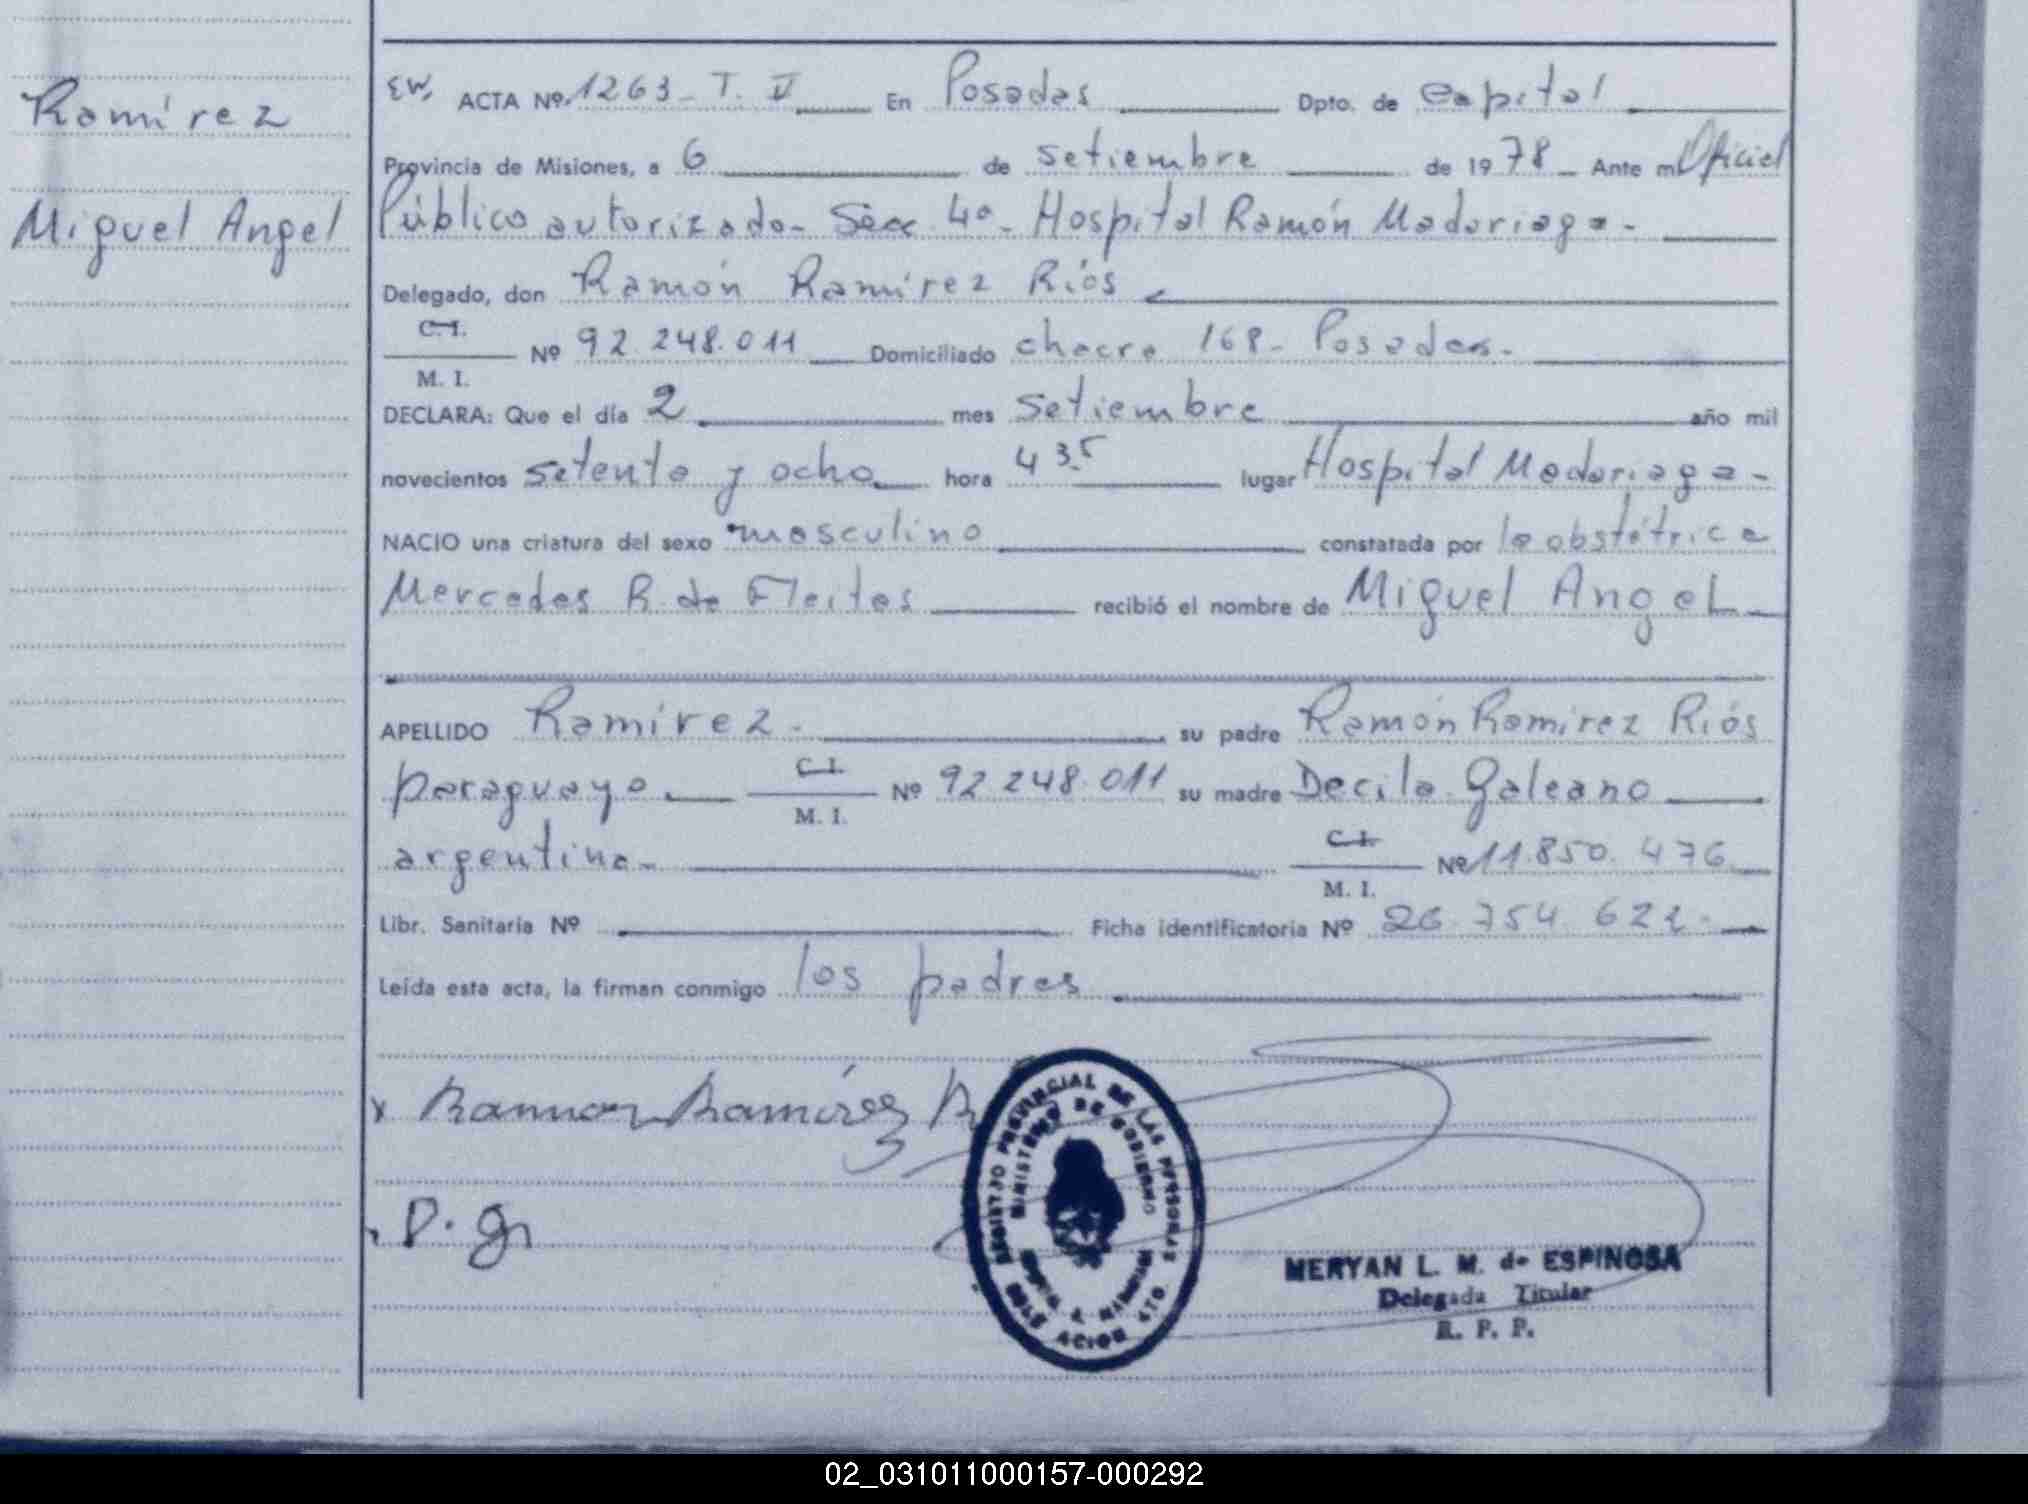 Ramírez
Miguel Angel
ACTA Nº 1263_ T. V En Posadas Dpto. de capital
Provincia de Misiones, a 6 de setiembre de 1978 Ante mí Oficial
Público autorizado- Secc 4ª- Hospital Ramón Madariaga-
Delegado, don Ramón Ramírez Ríos
C.I.
M. I. Nº 92.248.011 Domiciliado chacra 168- Posadas-
DECLARA: Que el día 2 mes setiembre año mil
novecientos setenta y ocho hora 4 35 lugar Hospital Madariaga-
NACIO una criatura del sexo masculino constatada por la obstétrica
Mercedes R. de Fleitas recibió el nombre de Miguel Angel
APELLIDO Ramírez- su padre Ramón Ramírez Ríos
paraguayo C.I.
M. I. Nº 92 248.011 su madre Decila Galeano
argentina- C.I.
M. I. Nº 11.850.476
Libr. Sanitaria Nº Ficha identificatoria Nº 26.754.622-
Leída esta acta, la firman conmigo los padres
x Ramon Ramírez R
D. G
REGISTRO PROVINCIAL DE LAS PERSONAS
MINISTERIO DE GOBIERNO
MERYAN L. M. de ESPINOSA
Delegada Titular
R. P. P.
02_031011000157-000292